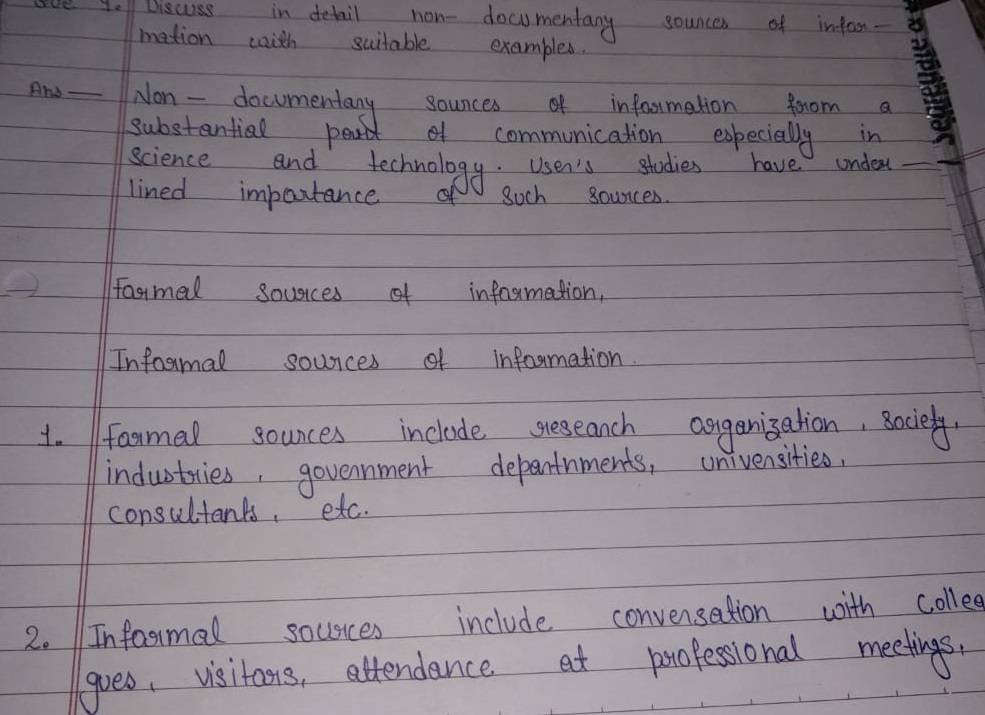 Que 4. Discuss in detail non- documentary sources of infor-
mation with suitable examples.
Ans — Non - documentary sources of information form a
substantial part of communication especially in
science and technology. User's studies have under-
lined importance of such sources.
Formal sources of information,
Informal sources of information.
1. Formal sources include research organization, society,
industries, government departnments, universities,
consultants, etc.
2. Informal sources include conversation with collea
gues, visitors, attendance at professional meetings,